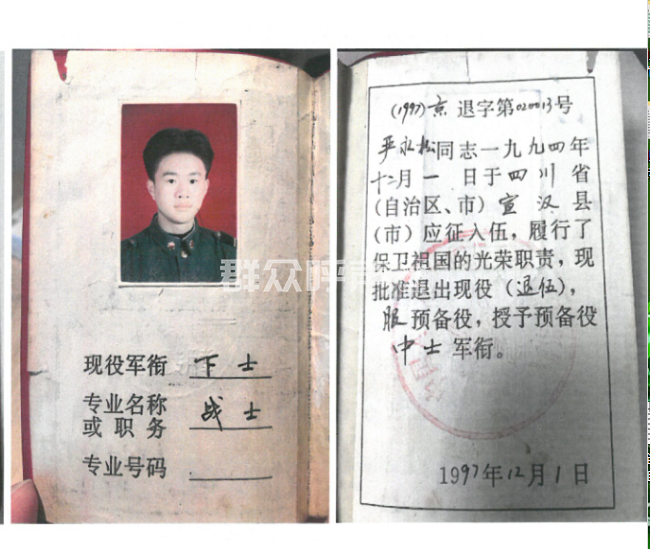 群众呼声
现役军衔 下士
专业名称
或职务 战士
专业号码
(1997)京退字第020013号
严永松同志一九九四年
十二月一日于四川省
(自治区、市)宣汉县
(市)应征入伍,履行了
保卫祖国的光荣职责,现
批准退出现役(退伍),
服预备役,授予预备役
中士军衔。
1997年12月1日